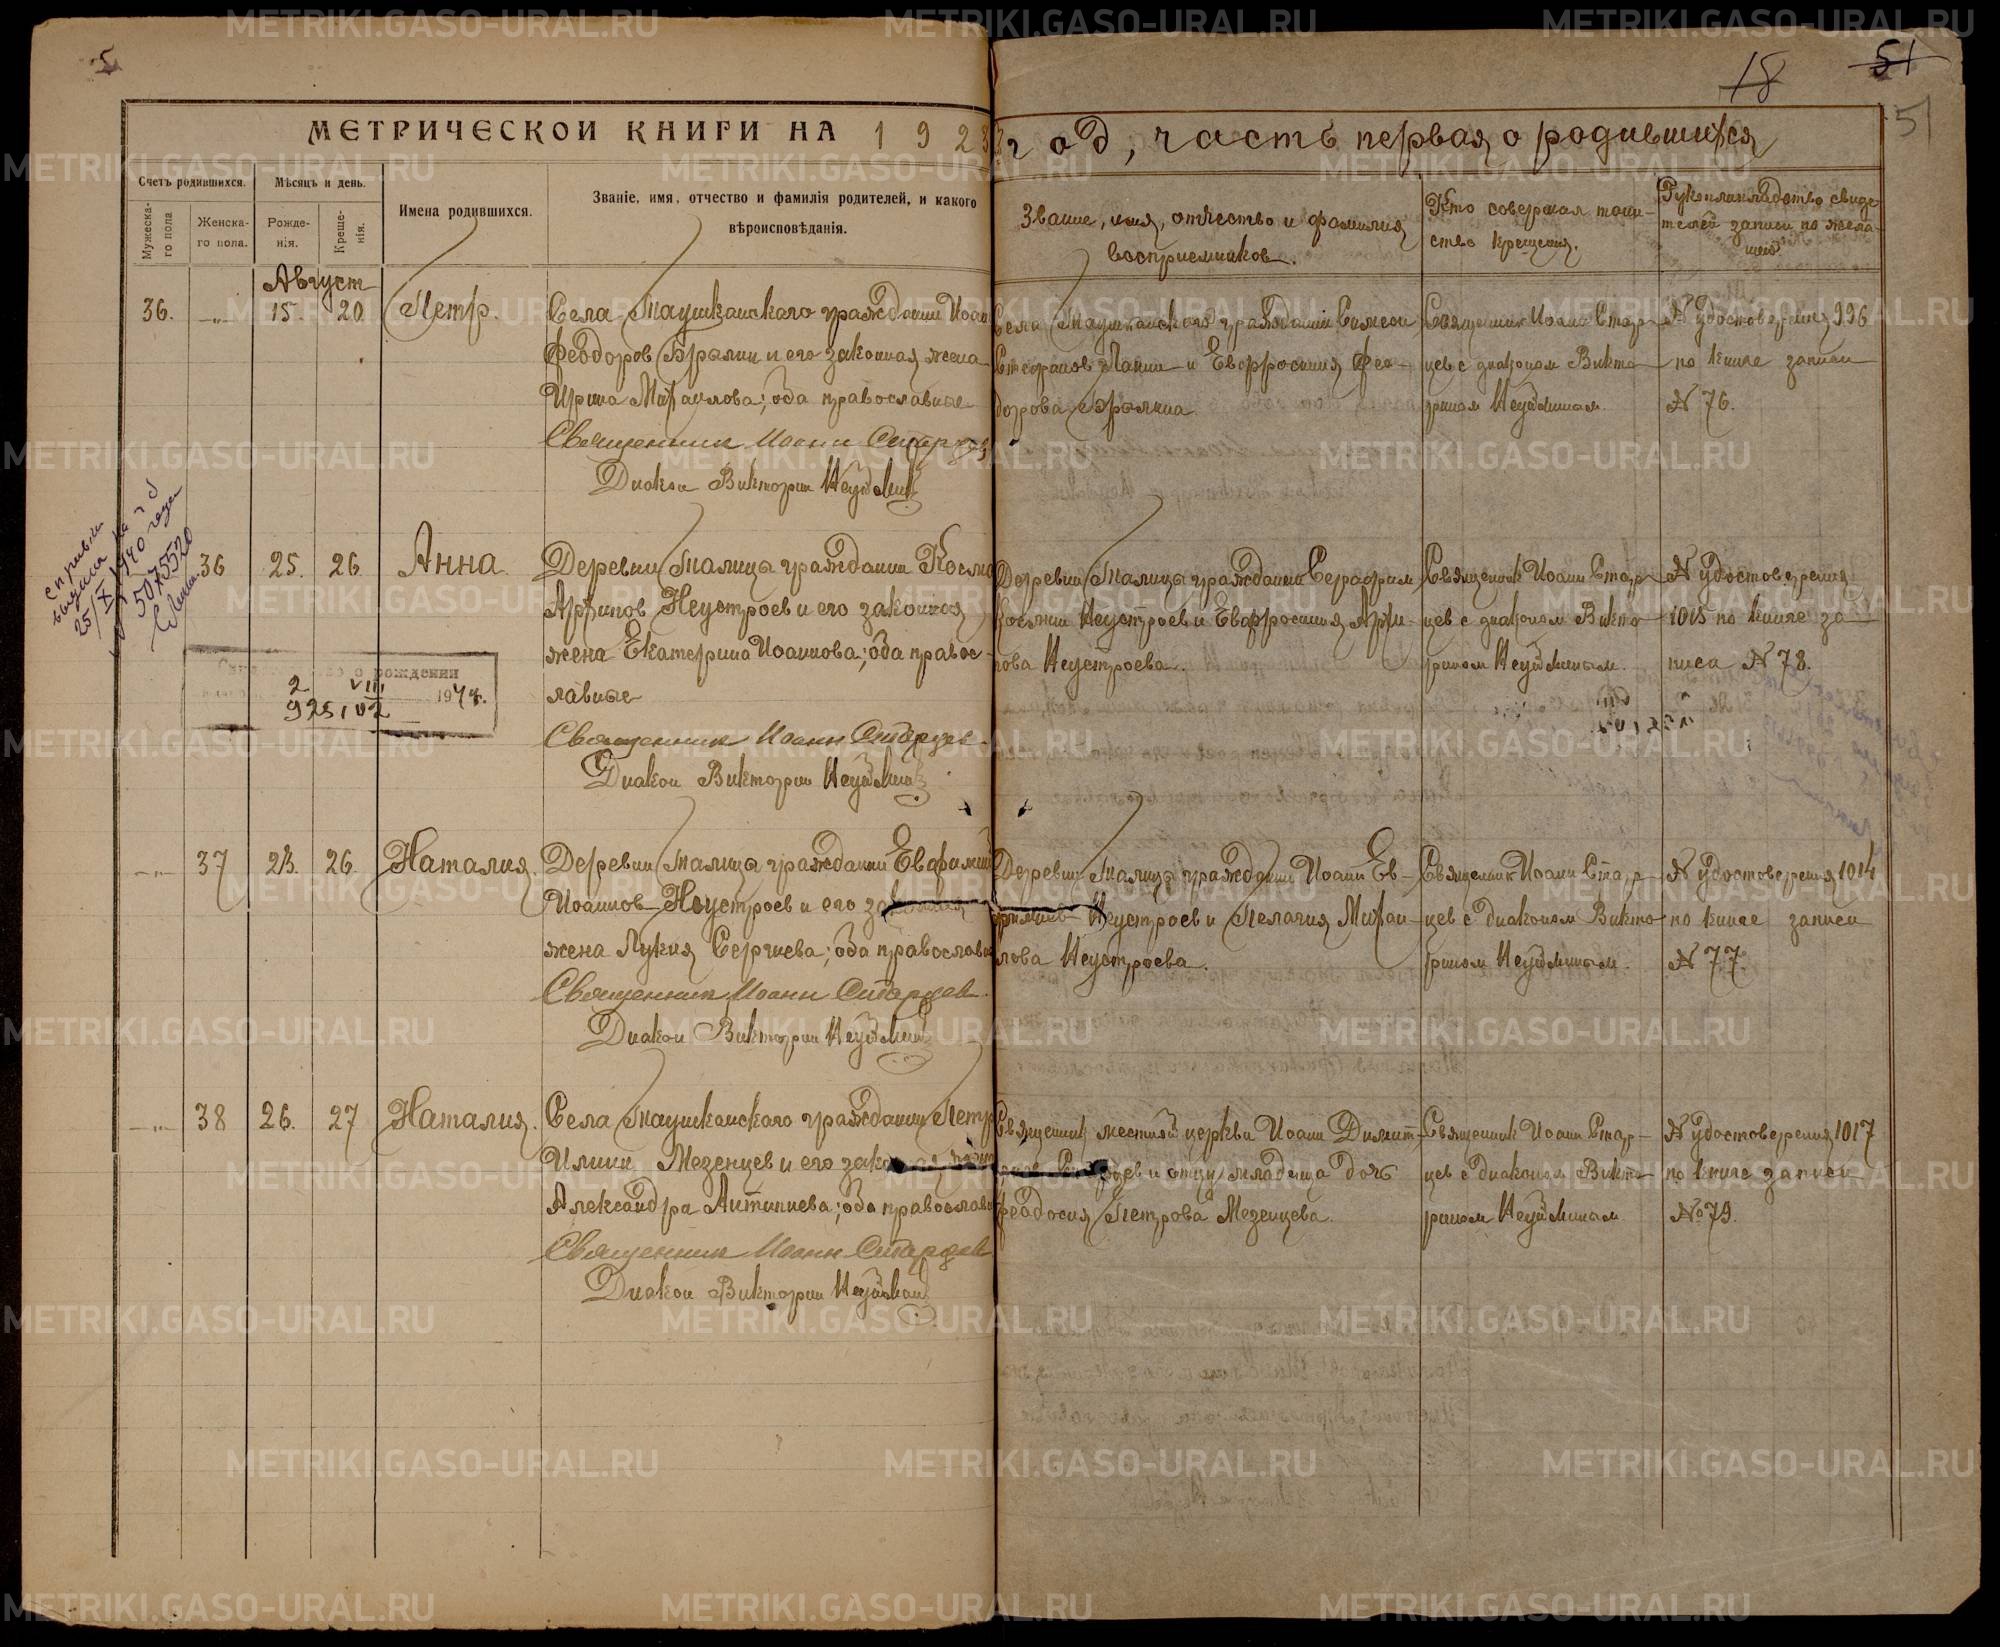 5
18
51
51
МЕТРИЧЕСКОЙ КНИГИ НА 1923 год, часть первая о родившихся
Счетъ родившихся.
Мужеска-
го пола
Женска-
го пола.
Мѣсяцъ и день.
Рожде-
нія.
Креще-
нія.
Имена родившихся.
Званіе, имя, отчество и фамилія родителей, и какого
вѣроисповѣданія.
Звание, имя, отчество и фамилия
восприемников.
Кто совершал таин-
ство крещения.
Рукоприкладство свиде
телей записи по жела-
нию
Август
36. -"- 15. 20 Петр.
Села Таушканского гражданин Иоан
Феодоров Бралин и его законная жена
Ирина Михаилова; оба православные
Священник Иоанн Старцев
Диакон Викторин Неуймин
Села Таушканского гражданин Симеон
Стефанов Панин и Евфросиния Фео-
дорова
Священник Иоанн Стар-
цев с диаконом Викто-
рином Неуйминым.
№ удостоверения 996
по книге записи
№ 76.
справка
выдана на
25/IX 1940 года
5075520
36 25. 26 Анна.
Деревни Талица гражданин Косма
Архипов Неустроев и его законная
жена Екатерина Иоаннова; оба правос-
лавные
Священник Иоанн Старцев.
Диакон Викторин Неуймин
Деревни Талица гражданин Серафим
Космин Неустроев и Евфросиния Архи-
пова Неустроева.
Священник Иоанн Стар-
цев с диаконом Викто-
рином Неуйминым.
№ удостоверения
1015 по книге за-
писи № 78.
о рождении
2 VIII 1974.
925102
-"- 37 23. 26. Наталия.
Деревни Талица гражданин Евфимий
Иоаннов Неустроев и его законная
жена Лукия Сергиева; оба православн
Священник Иоанн Старцев.
Диакон Викторин Неуймин
Деревни Талица гражданин Иоанн Ев-
фимиев Неустроев и Пелагия Михаи-
лова Неустроева.
Священник Иоанн Стар-
цев с диаконом Викто-
рином Неуйминым.
№ удостоверения 1014
по книге записи
№ 77.
-"- 38 26. 27 Наталия.
Села Таушканского гражданин Петр
Илиин Мезенцев и его законная жена
Александра Антипиева; оба православн
Священник Иоанн Старцев
Диакон Викторин Неуймин
Священник местной церкви Иоанн Димит-
риев Старцев и отцу младенца дочь
Феодосия Петрова Мезенцева.
Священник Иоанн Стар-
цев с диаконом Викто-
рином Неуйминым
№ удостоверения 1017
по книге записи
№ 79.
METRIKI.GASO-URAL.RU